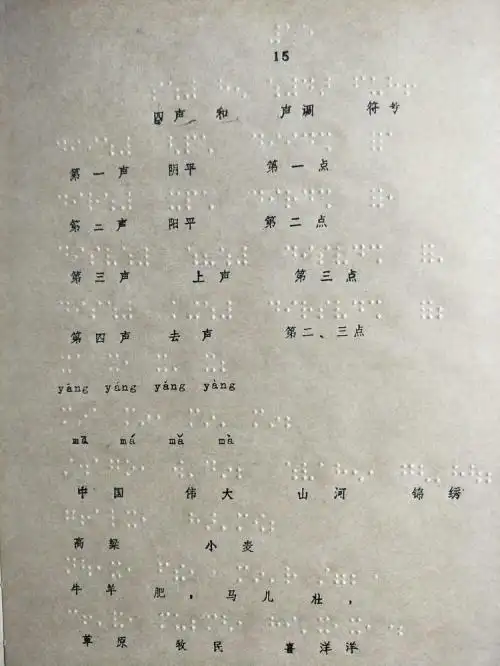 15
四声 和 声调 符号
第一声 阴平 第一点
第二声 阳平 第二点
第三声 上声 第三点
第四声 去声 第二、三点
yāng yáng yǎng yàng
mā má mǎ mà
中国 伟大 山河 锦绣
高粱 小麦
牛羊 肥，马儿 壮，
草原 牧民 喜洋洋